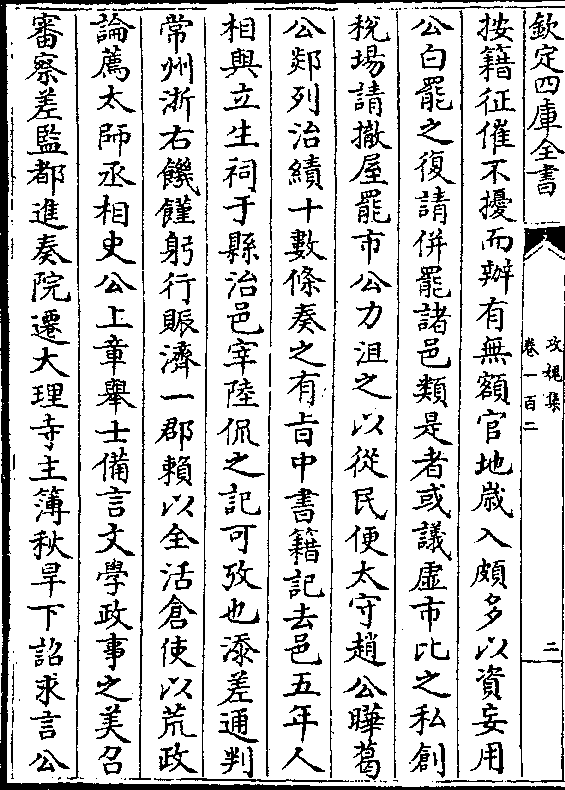 欽定四庫全書
攻媿集
卷一百二
二
按籍征催不擾而辦有無額官地歳入頗多以資妄用
公白罷之復請併罷諸邑類是者或議虛市比之私創
稅場請撤屋罷市公力沮之以從民便太守趙公曄葛
公郯列治績十數條奏之有㫖中書籍記去邑五年人
相與立生祠于縣治邑宰陸侃之記可攷也添差通判
常州浙右饑饉躬行賑濟一郡賴以全活倉使以荒政
論薦太師丞相史公上章舉士備言文學政事之美召
審察差監都進奏院遷大理寺主簿秋旱下詔求言公